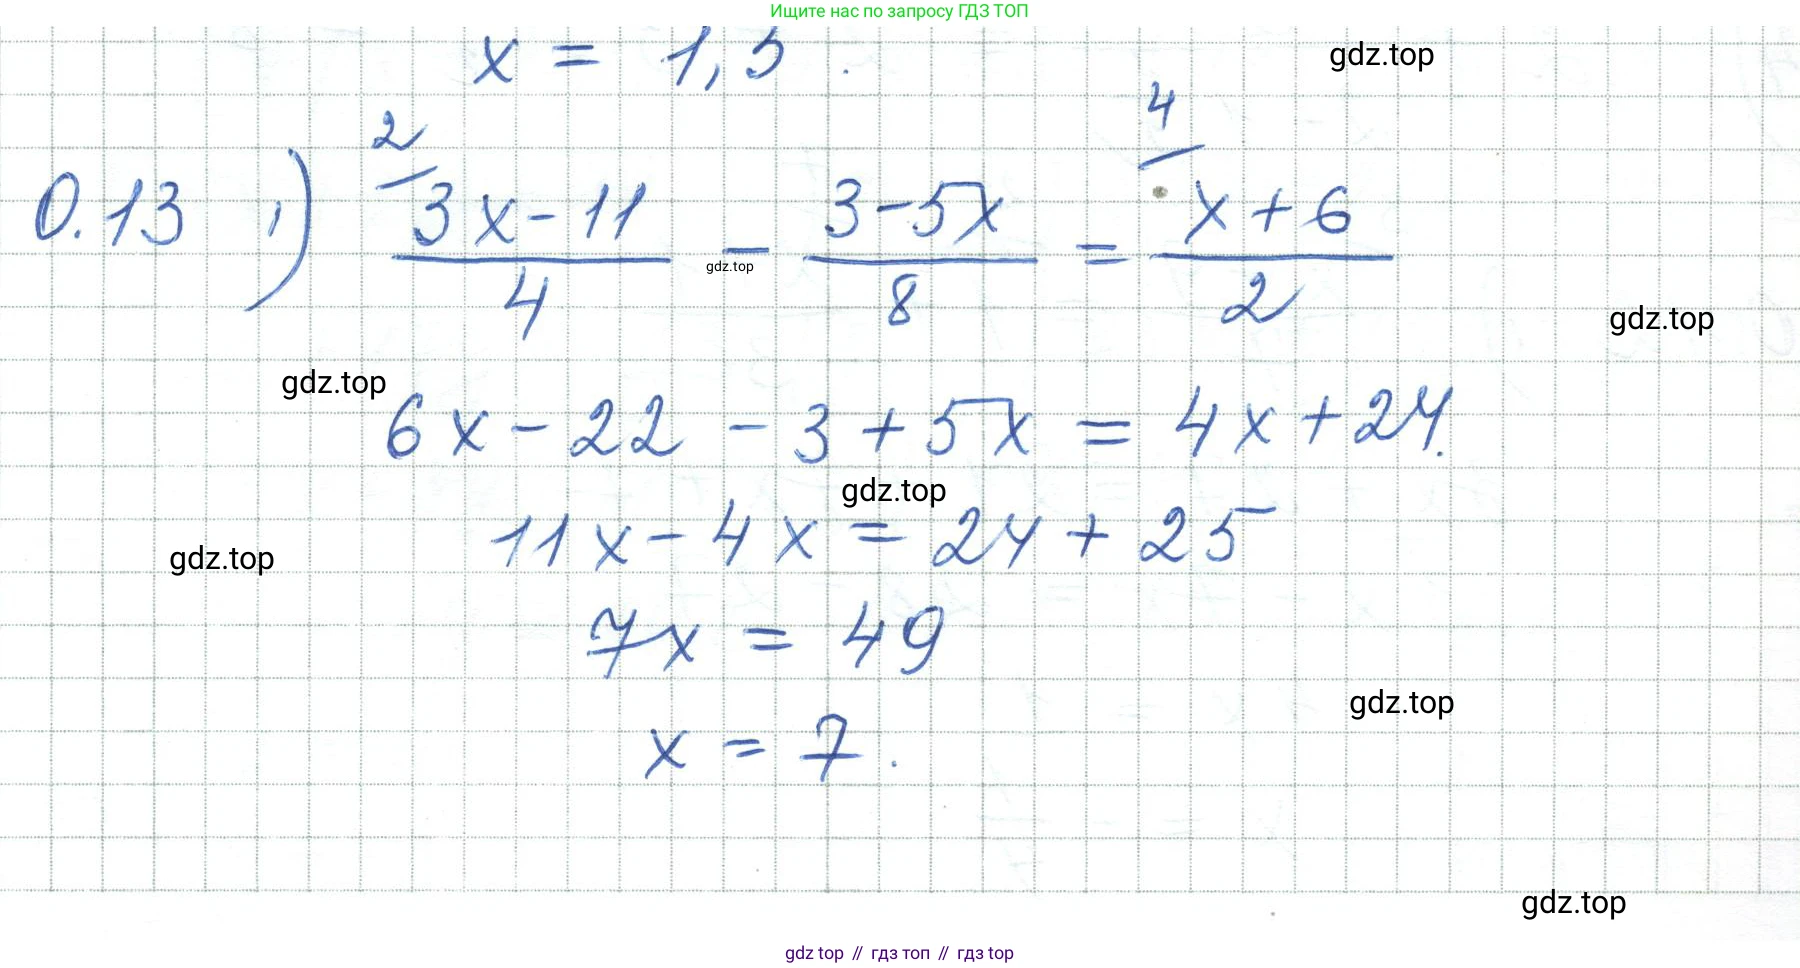 Ищите нас по запросу ГДЗ ТОП
x = 1,5 .
gdz.top
0.13 1) 2/ (3x - 11)/4 - (3 - 5x)/8 = 4/ (x + 6)/2
gdz.top
gdz.top
gdz.top
6x - 22 - 3 + 5x = 4x + 24.
gdz.top
11x - 4x = 24 + 25
gdz.top
7x = 49
gdz.top
x = 7.
gdz.top
gdz top // гдз топ // гdz top